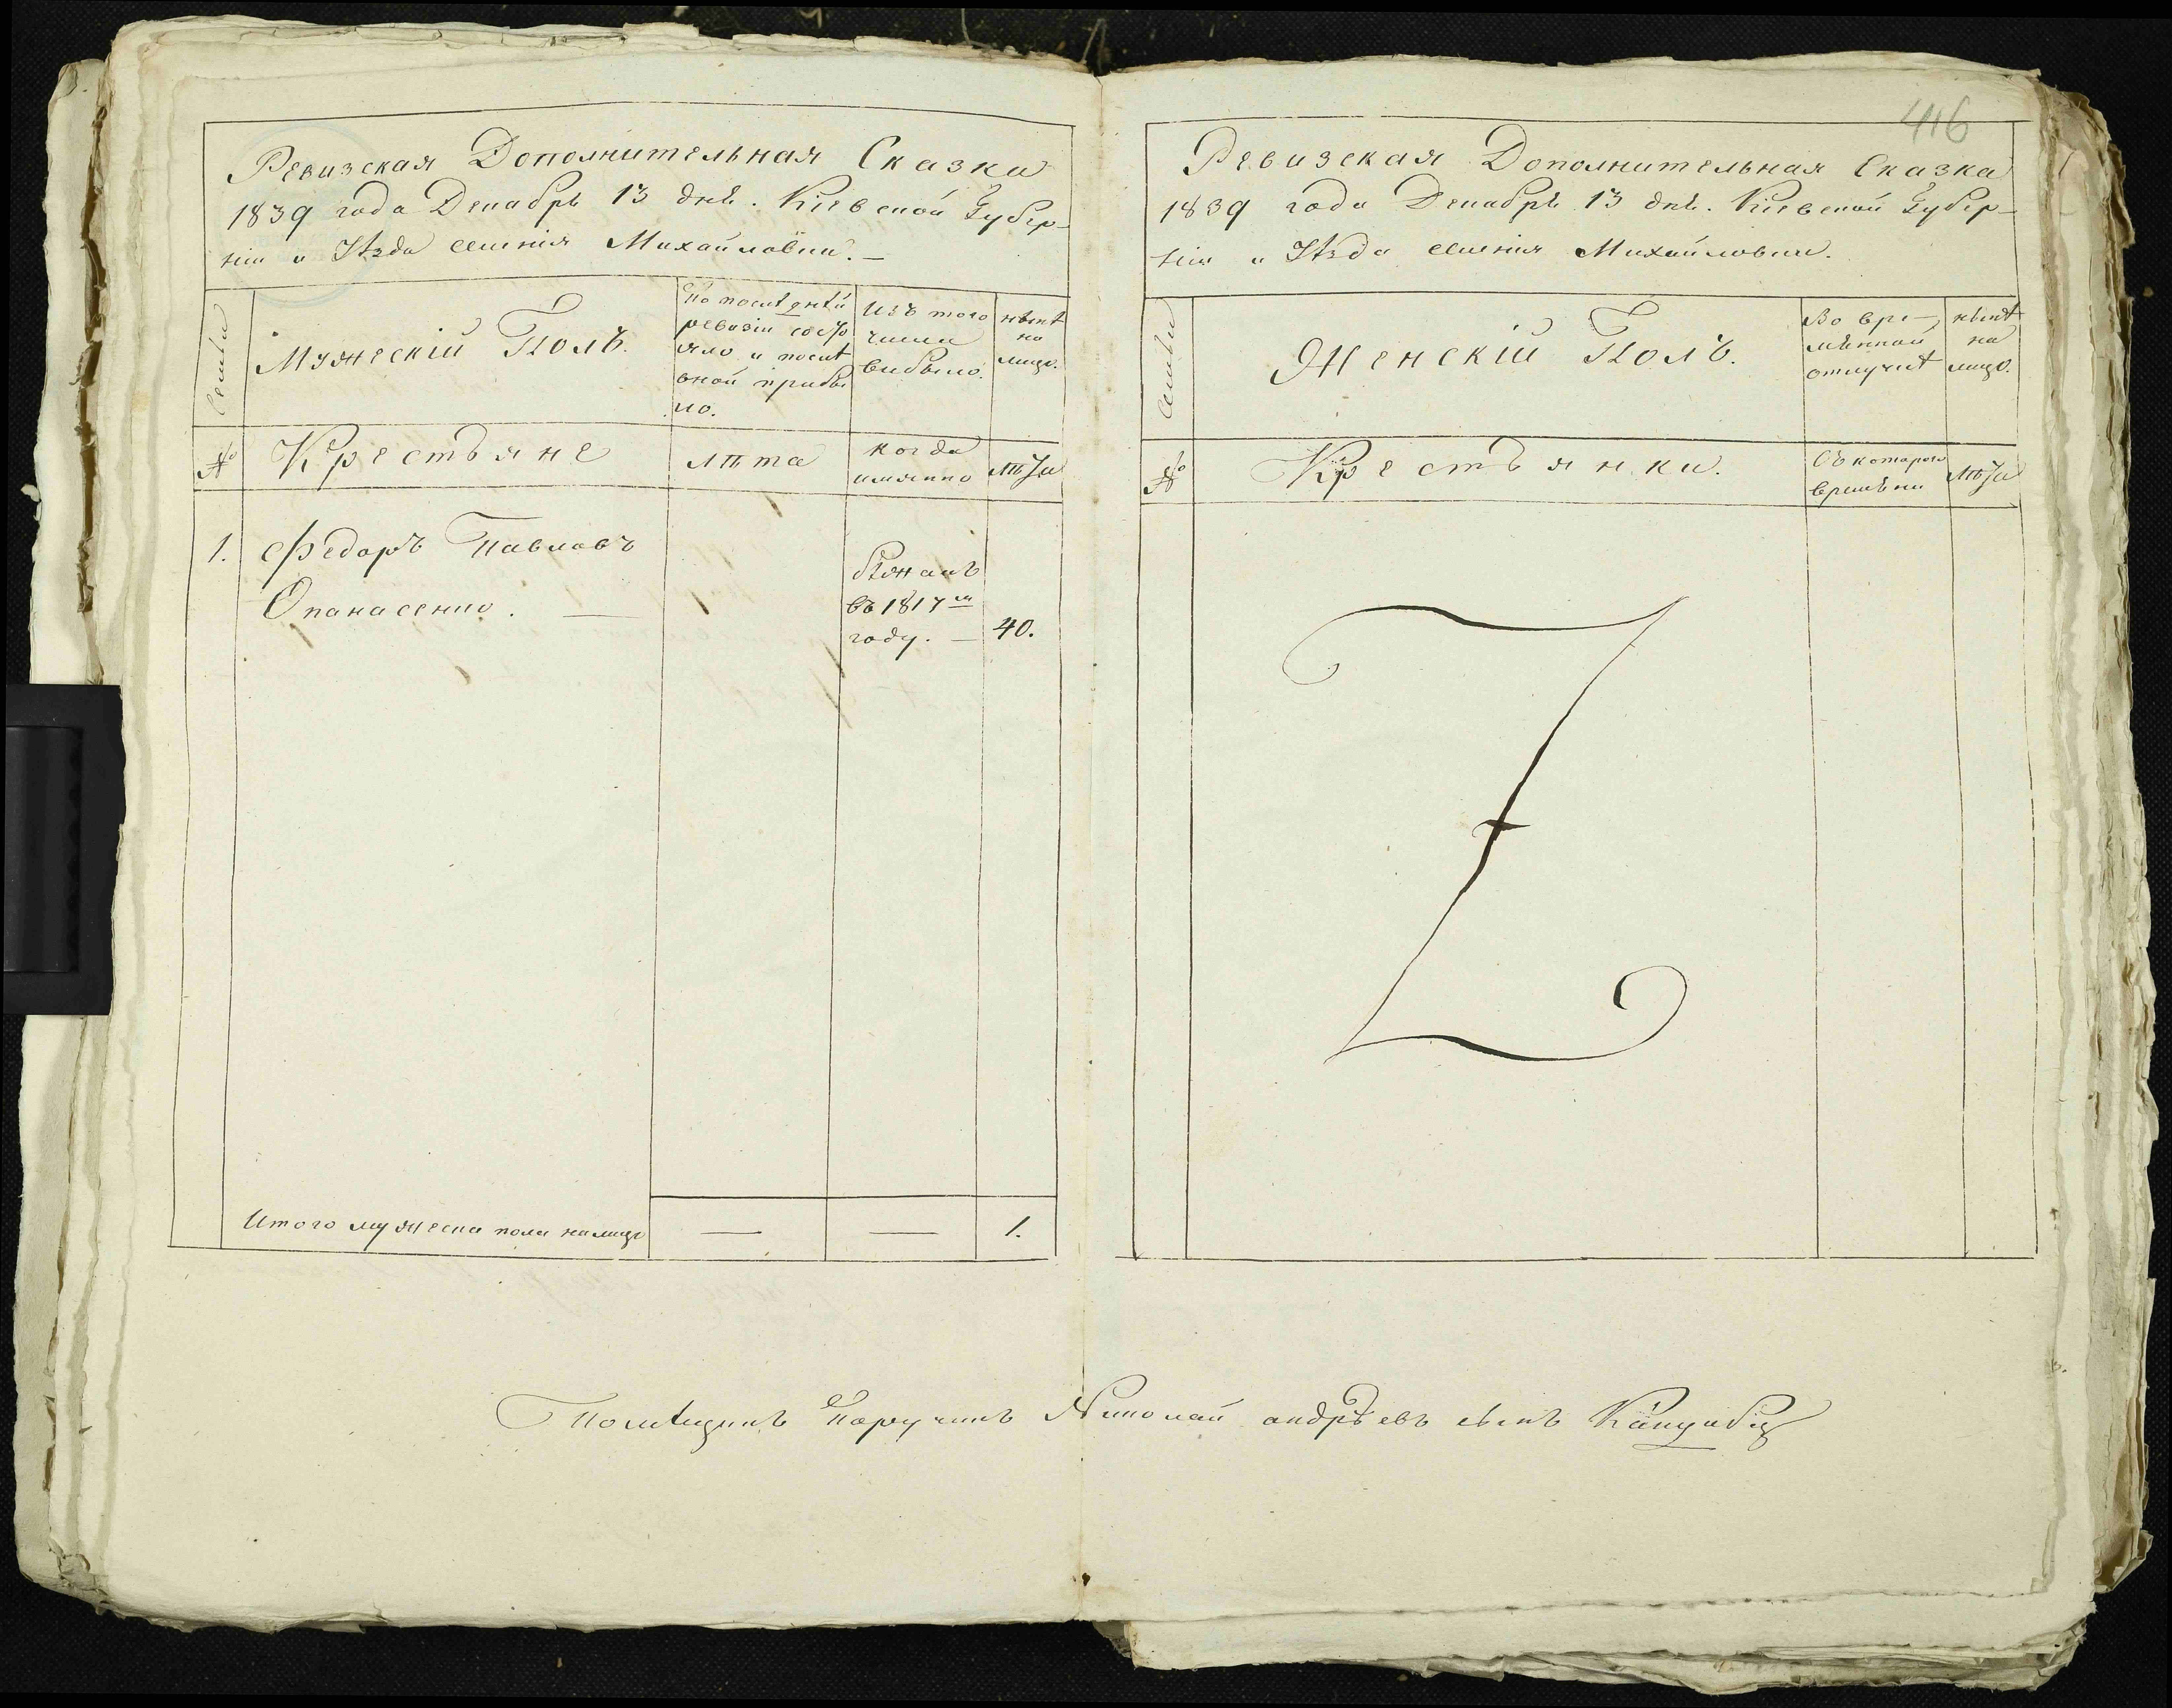 416
Ревизская Дополнительная Сказка
1839 года Декабрь 13 днь. Кіевской Губер-
ніи и Уѣзда селенія Михайловки. –
Семьи
Мужескій Полъ.
По послѣднѣй
ревизіи состо
яло и послѣ
оной прибы
ло.
Изъ того
числа
выбыло.
нынѣ
на
лицо.
№
Крестьяне
лѣта
когда
имянно
лѣта
1.
Федоръ Павловъ
Опанасенко. —
бѣжалъ
въ 1817м
году. —
40.
Итого мужеска пола налицо
—
—
1.
Ревизская Дополнительная Сказка
1839 года Декабрь 13 днь. Кіевской Губер-
ніи и Уѣзда селенія Михайловки.
Семьи
Женскій Полъ.
Во вре-
мѣнной
отлучкѣ
нынѣ
на
лицо.
№
Крестьянки.
Съ котораго
времѣни
лѣта
Помѣщикъ Поручикъ Николай андрѣевъ сынъ